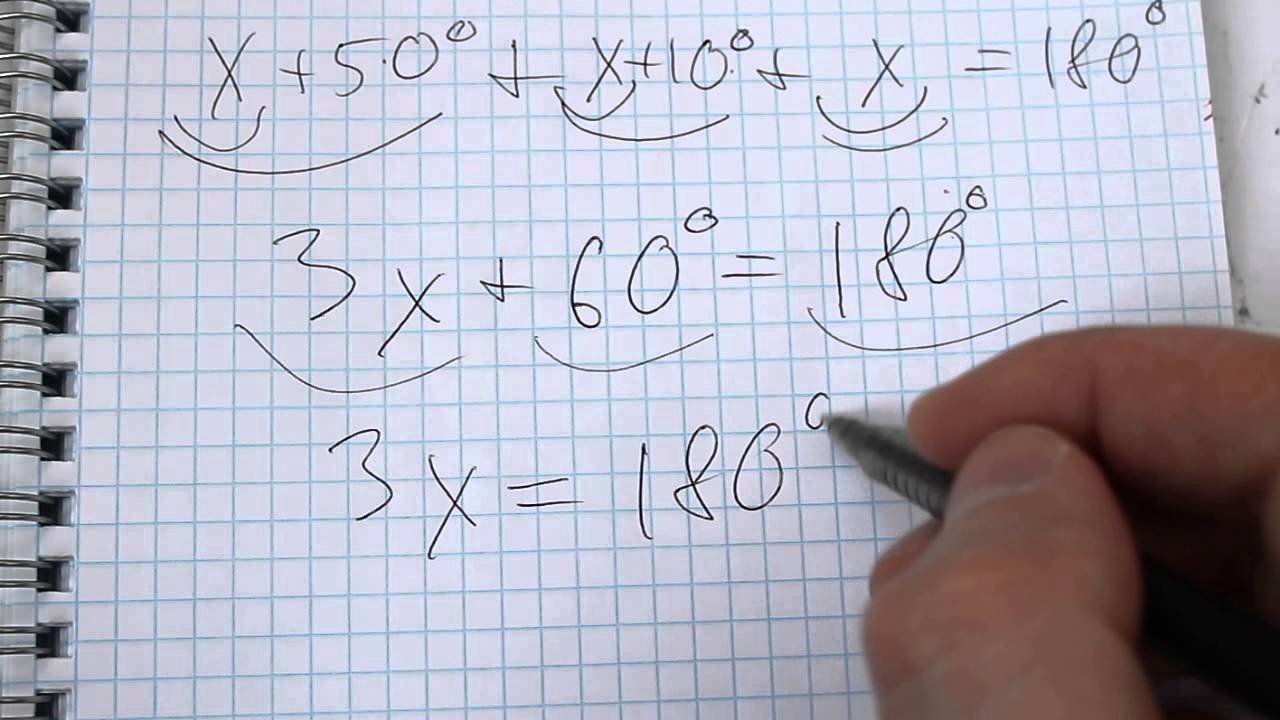 x + 50° + x + 10° + x = 180°
3x + 60° = 180°
3x = 180°